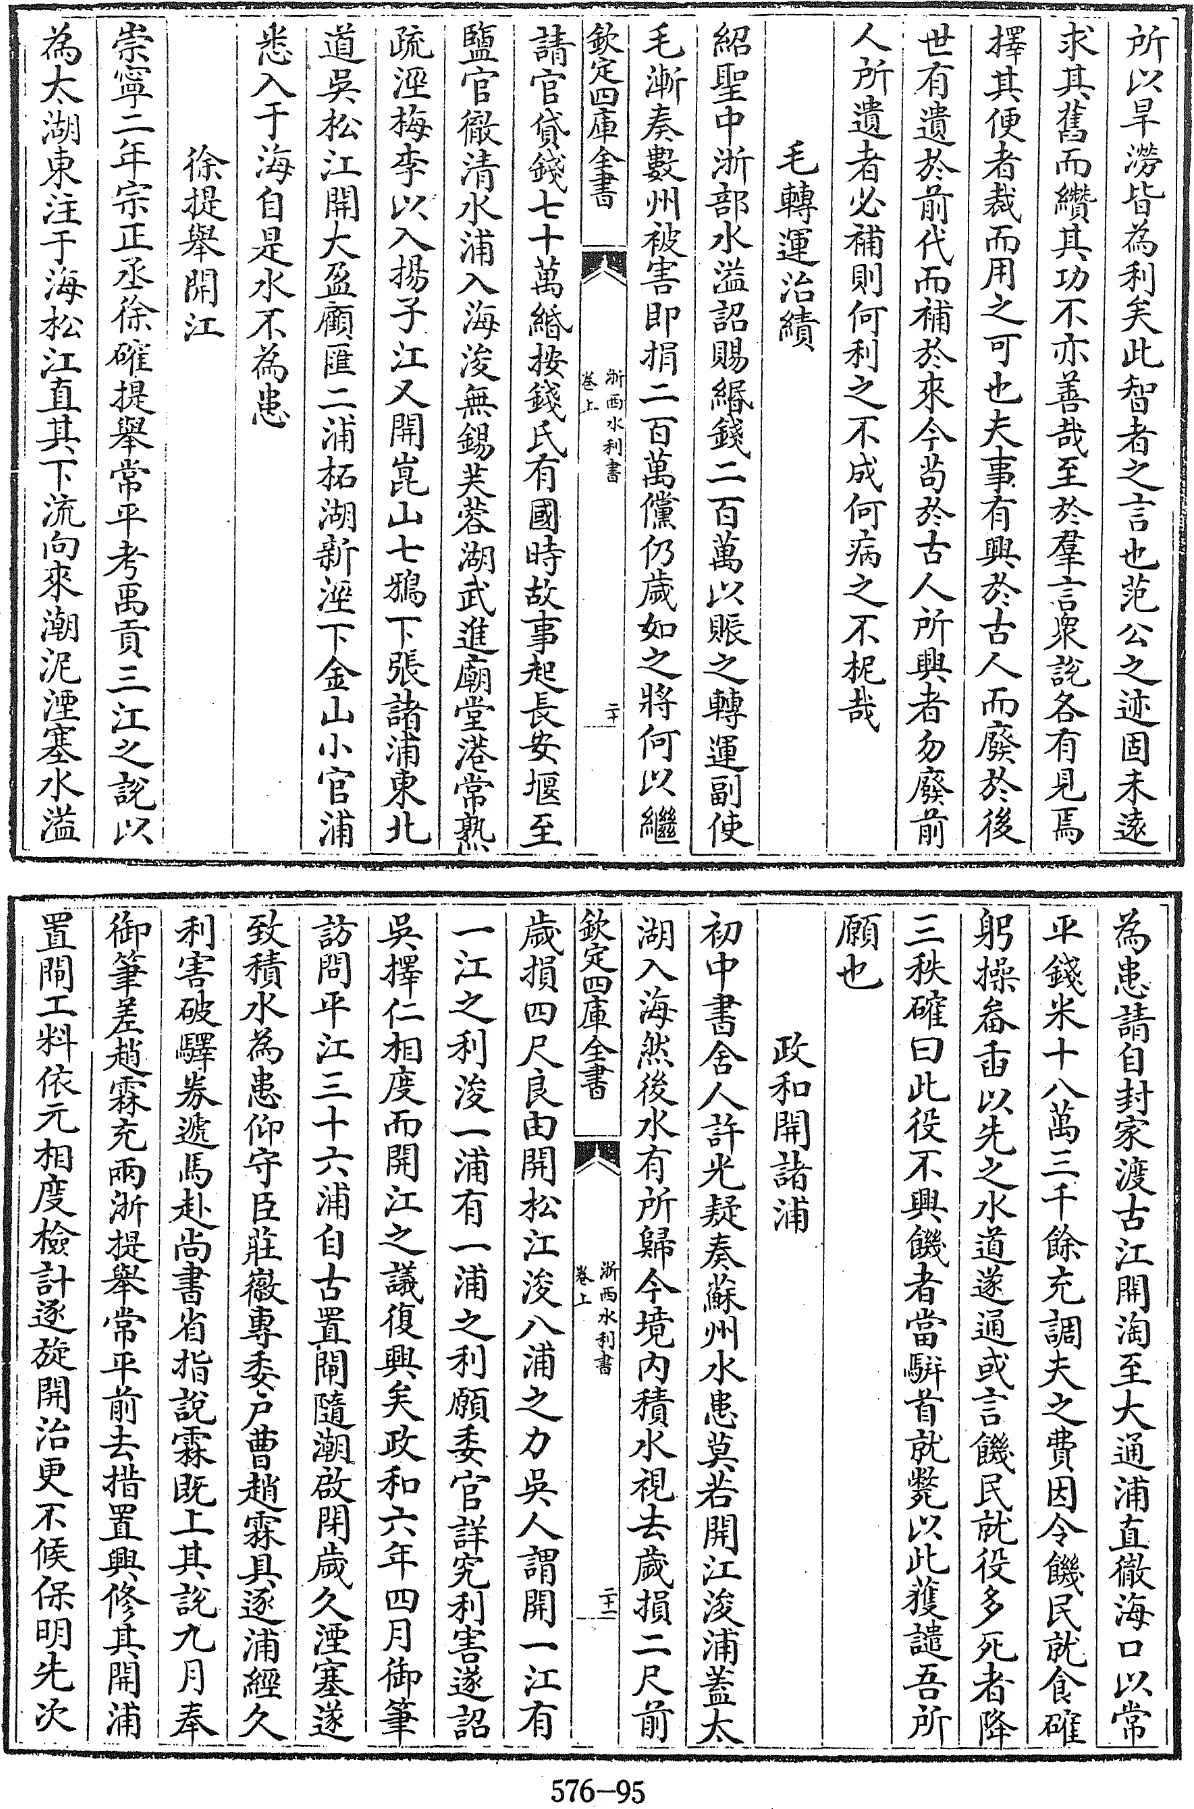 所以旱澇皆為利矣此智者之言也范公之迹固未逺
求其舊而纘其功不亦善哉至於羣言衆說各有見焉
擇其便者裁而用之可也夫事有興於古人而廢於後
世有遺於前代而補於來今茍於古人所興者勿廢前
人所遺者必補則何利之不成何病之不柅哉
毛轉運治績
紹聖中浙部水溢詔賜緡錢二百萬以賑之轉運副使
毛漸奏數州被害即捐二百萬儻仍歲如之將何以繼
欽定四庫全書
浙西水利書
卷上
二十
請官貸錢七十萬緡按錢氏有國時故事起長安堰至
鹽官徹清水浦入海浚無錫芙蓉湖武進廟堂港常熟
疏涇梅李以入揚子江又開崑山七鵶下張諸浦東北
道吳松江開大盈顧匯二浦柘湖新涇下金山小官浦
悉入于海自是水不為患
徐提舉開江
崇寧二年宗正丞徐確提舉常平考禹貢三江之說以
為太湖東注于海松江直其下流向來潮泥湮塞水溢
為患請自封家渡古江開淘至大通浦直徹海口以常
平錢米十八萬三千餘充調夫之費因令饑民就食確
躬操畚臿以先之水道遂通或言饑民就役多死者降
三秩確曰此役不興饑者當駢首就斃以此獲譴吾所
願也
政和開諸浦
初中書舍人許光疑奏蘇州水患莫若開江浚浦蓋太
湖入海然後水有所歸今境内積水視去歲損二尺前
欽定四庫全書
浙西水利書
卷上
二十一
歲損四尺良由開松江浚八浦之力吳人謂開一江有
一江之利浚一浦有一浦之利願委官詳究利害遂詔
吳擇仁相度而開江之議復興矣政和六年四月御筆
訪問平江三十六浦自古置閘隨潮啟閉歲久湮塞遂
致積水為患仰守臣莊徽專委户曹趙霖具逐浦經久
利害破驛券遞馬赴尚書省指說霖既上其說九月奉
御筆差趙霖充兩浙提舉常平前去措置興修其開浦
置閘工料依元相度檢計逐旋開治更不候保明先次
576-95